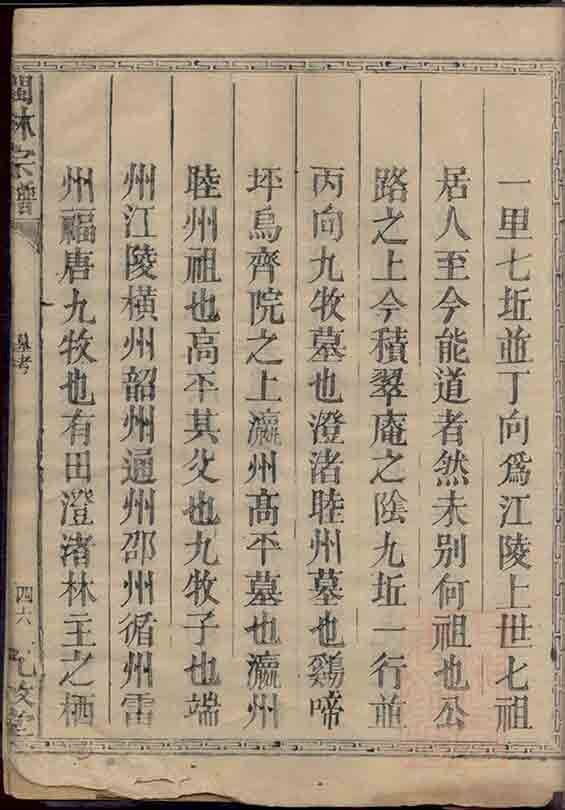 一里七坵並丁向爲江陵上世七祖
居人至今能道者然未别何祖也公
路之上今積翠庵之陰九坵一行並
丙向九牧墓也澄渚睦州墓也鷄啼
坪烏齊院之上瀛州高平墓也瀛州
睦州祖也高平其父也九牧子也端
州江陵橫州韶州通州邵州循州雷
州福唐九牧也有田澄渚林主之栖
閩林宗譜
墓考
四六
九牧堂